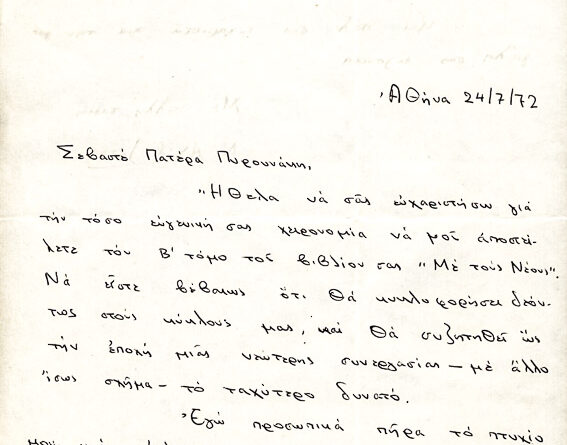 Ἀθήνα 24/7/72
Σεβαστό Πατέρα Πυρουνάκη,
Ἤθελα νά σᾶς εὐχαριστήσω γιά
τήν τόσο εὐγενική σας χειρονομία νά μοῦ ἀποστεί-
λετε τόν Β' τόμο τοῦ βιβλίου σας "Μέ τούς Νέους".
Νά εἶστε βέβαιος ὅτι θά κυκλοφορήσει δεόν-
τως στούς κύκλους μας, καί θά συζητηθεῖ ὡς
τήν ἐποχή μιᾶς νεώτερης συνεργασίας – μέ ἄλλο
ἴσως σχῆμα – τό ταχύτερο δυνατό.
Ἐγώ προσωπικά πῆρα τό πτυχίο